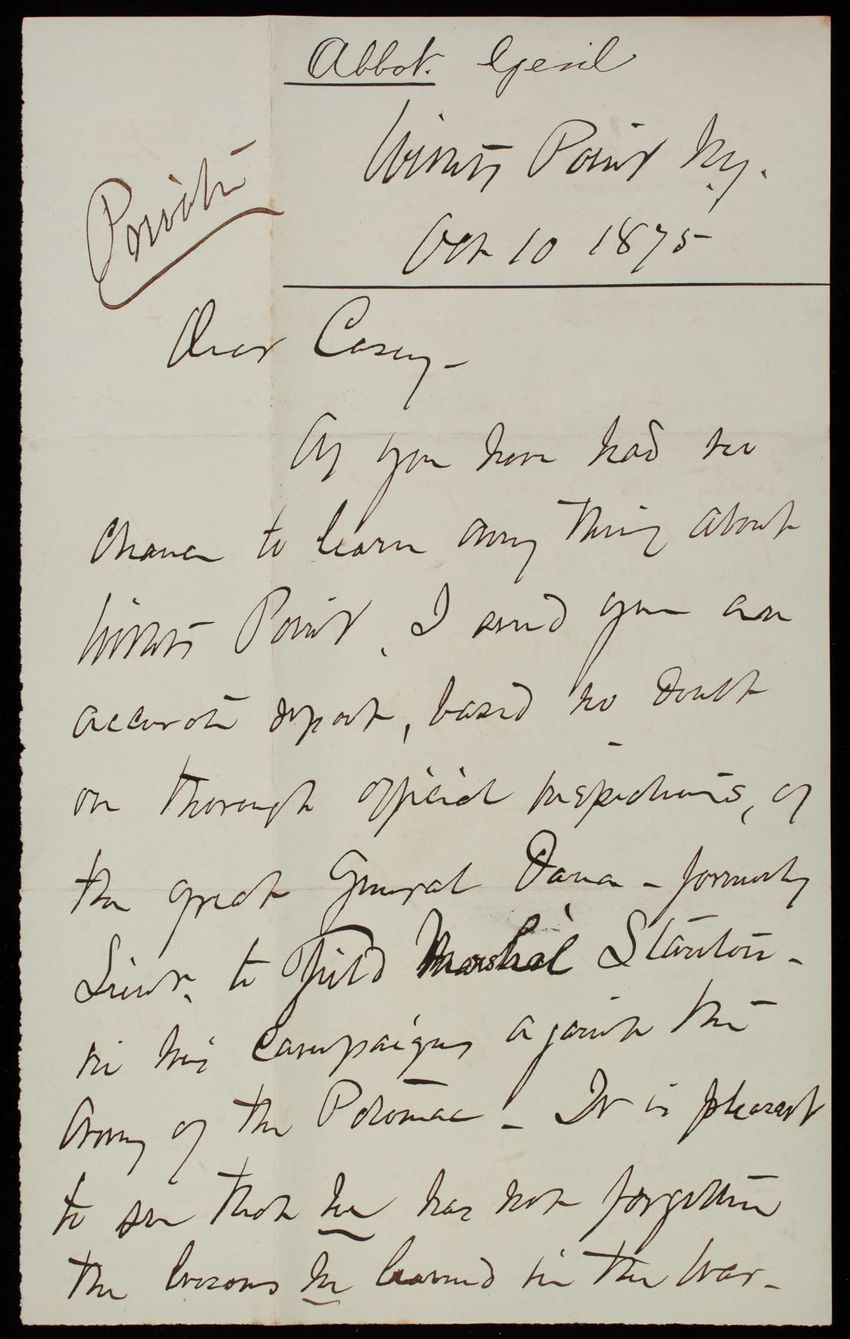 Abbot. Genl
Willets Point N.y.
Oct 10 1875
Private
Dear Casey-
As you have had no
chance to learn any thing about
Willets Point, I send you an
accurate report, based no doubt
on thorough official inspections, of
the great General Dana - formerly
Lieut. to Field Marshal Stanton -
in his campaigns against the
Army of the Potomac - It is pleasant
to see that he has not forgotten
the lessons he learned in the War -